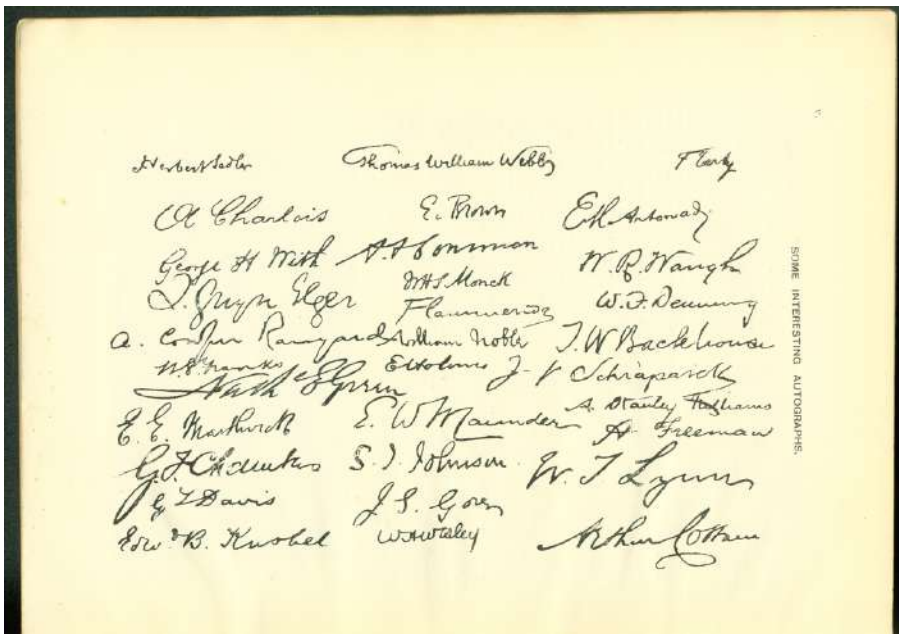 Herbert Sadler Thomas William Webb F Terby
A Charlois E. Brown E M Antoniadi
George H With W. R. Waugh
T. Gwyn Elger W H S Monck
Flammarion W. F. Denning
A. Cowper Ranyard William Noble T. W Backhouse
W. S. Franks E Holmes J. V Schiaparelli
Nath E Green
A. Stanley Williams
E. E. Markwick E. W Maunder A. Freeman
G. F. Chambers S. J. Johnson. W. T Lynn
G L Davis J. E. Gore
Edw. B. Knobel W H Wesley Arthur Cottam
SOME INTERESTING AUTOGRAPHS.